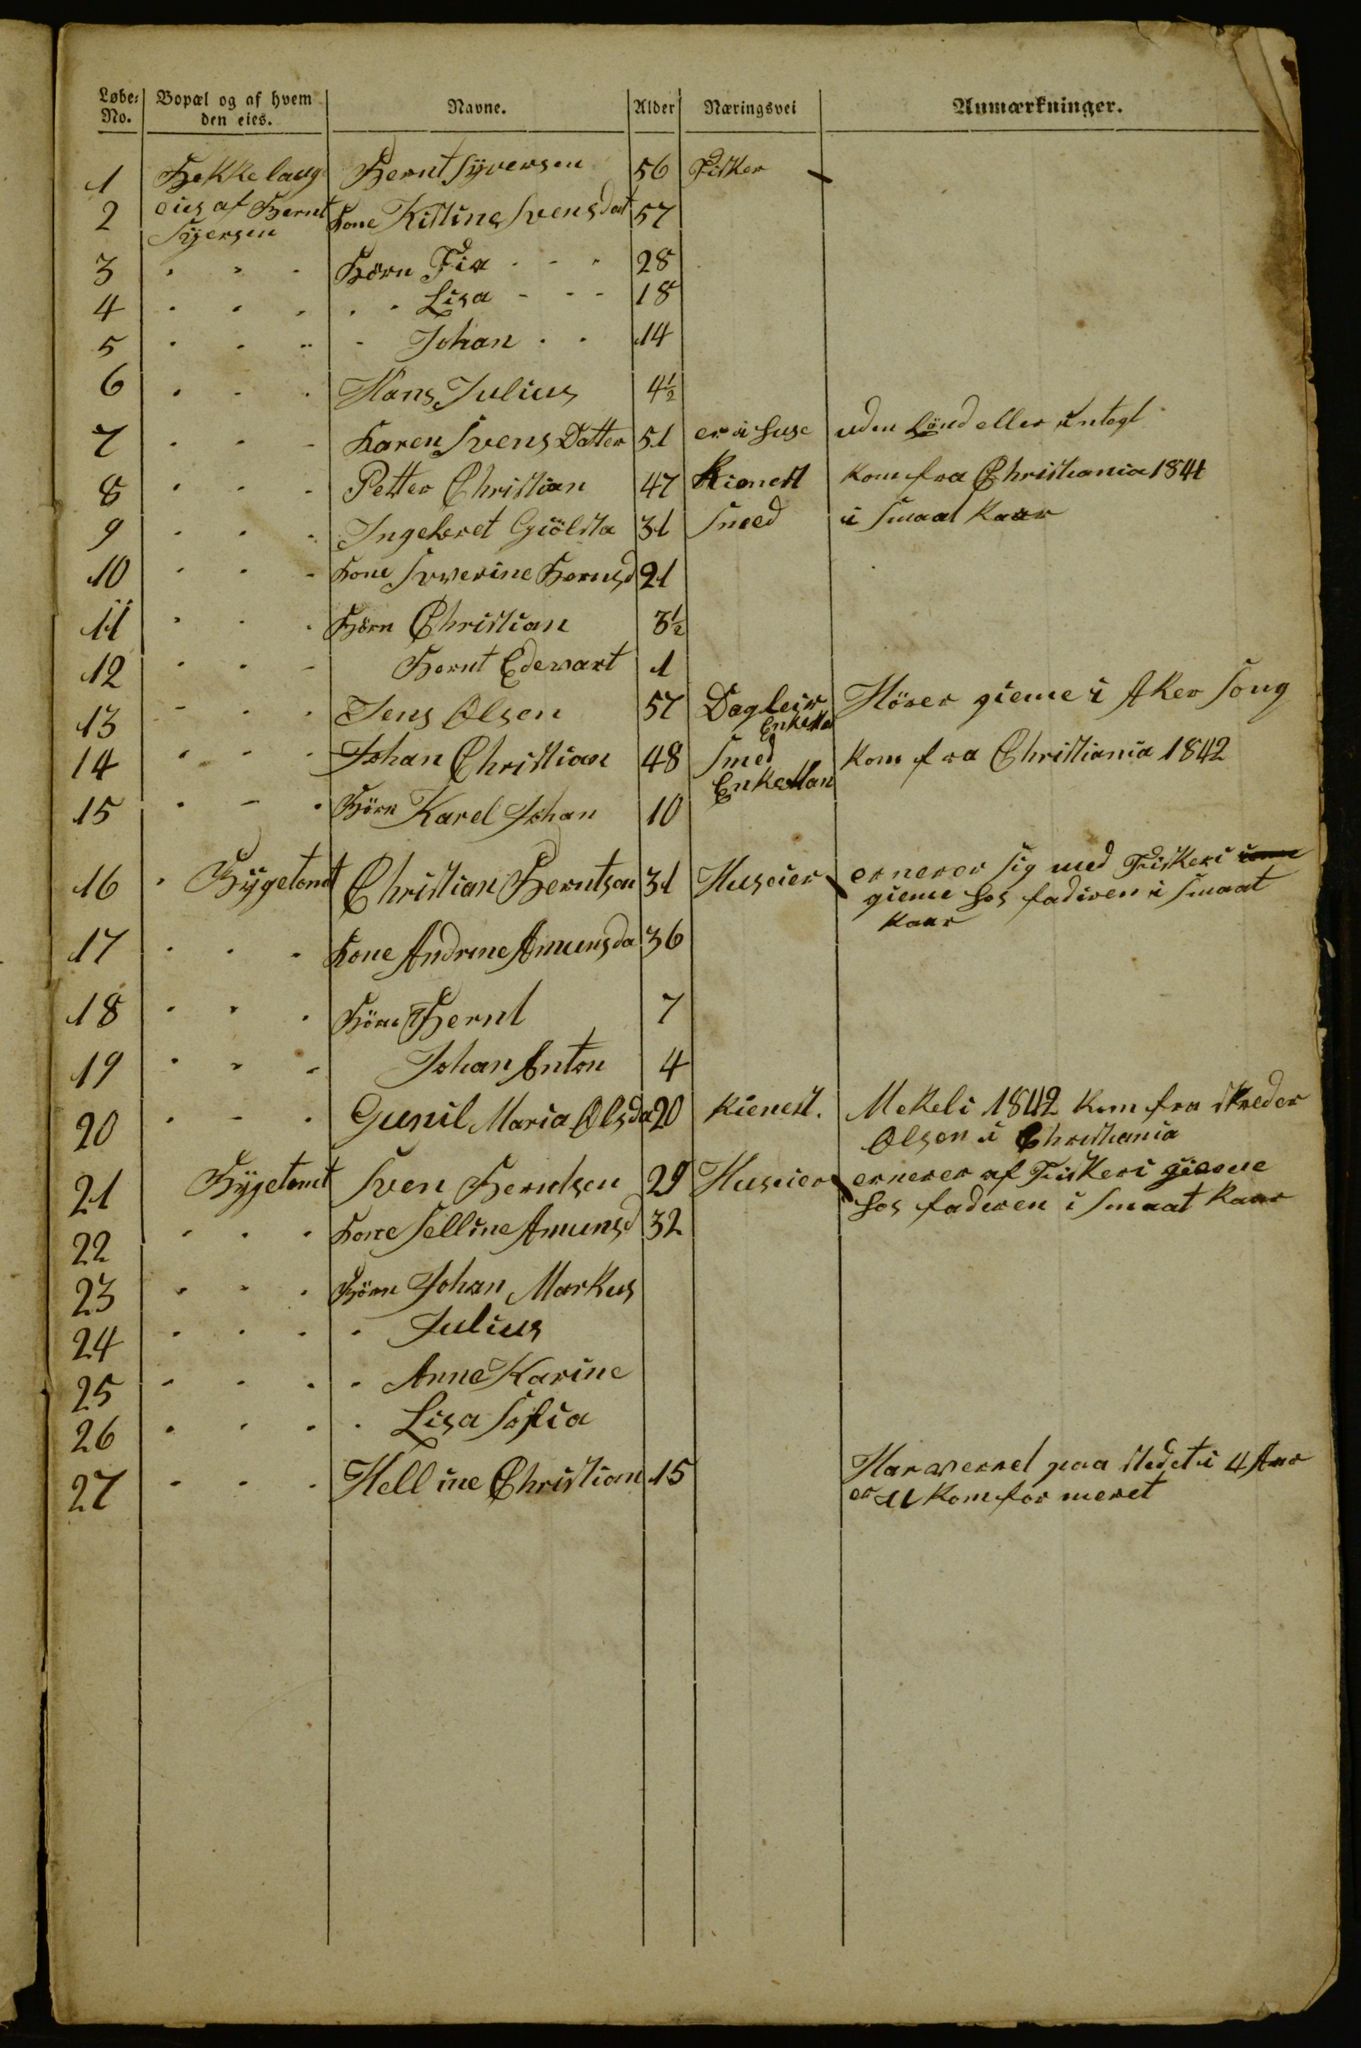 Løbe- No. Bopæl og af hvem den eies. Navne. Alder Næringsvei Anmærkninger.
1 Bekkelaug Bernt Syversen 56 Fisker
2 eies af Bernt Syersen Kone Kistine Svensdat 57
3 Børn Fia 28
4 Lisa 18
5 Johan 14
6 Hans Julius 4½
7 Karen Svens Datter 51 er i huse uden Lönd eller integt
8 Petter Christian 47 kienest kom fra Christiania 1841
9 Ingebret Giölsta 31 Smed i Smaat Kaar
10 Kone Syverine Bernsd 21
11 Börn Christian 3½
12 Bernt Edewart 1
13 Jens Olsen 57 Dagleir Enkema Hörer gieme i Aker Song
14 Johan Christian 48 Smed Enkeman kom fra Christiania 1842
15 Börn Karel Johan 10
16 Bÿgetomt Christian Berntsen 31 Huseier ernerer sig med Fiskeri
gieme hos fadiren i Smaat
kaar
17 Kone Andrine Amunsda 36
18 Börn Bernt 7
19 Johan Anton 4
20 Gunil Maria Olsda 20 kienest. Mekeli 1842 kom fra skreder
Olsen i Christiania
21 Bÿgetomt Sven Berntsen 29 Huseier ernerer af Fiskeri gieme
hos faderen i Smaat Kaar
22 Kone Selline Amunsd 32
23 Börn Johan Markus
24 Julius
25 Anne Karine
26 Lisa Sofia
27 Helline Christian 15 Har verret paa stedet i 4 Aar
er U komformeret